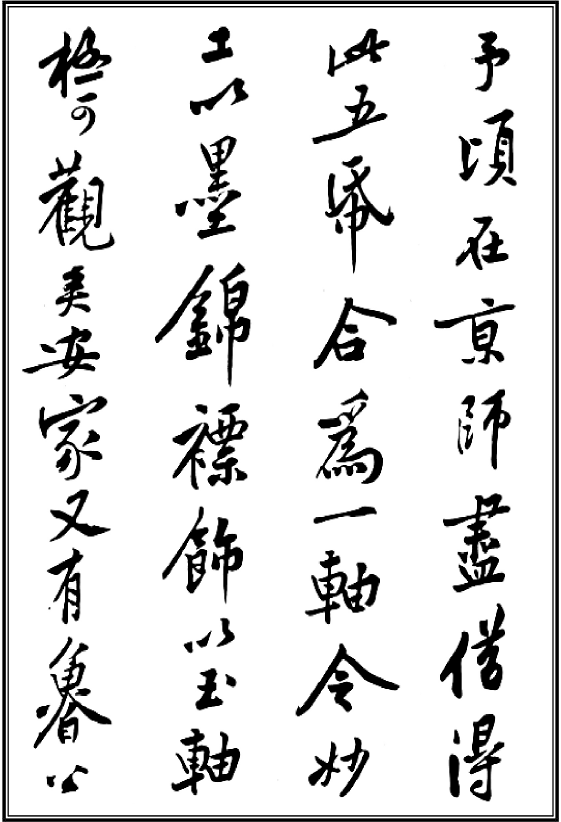 予頃在京師盡借得
此五帋合爲一軸令妙
工以墨錦褾飾以玉軸
極可觀矣安家又有魯公